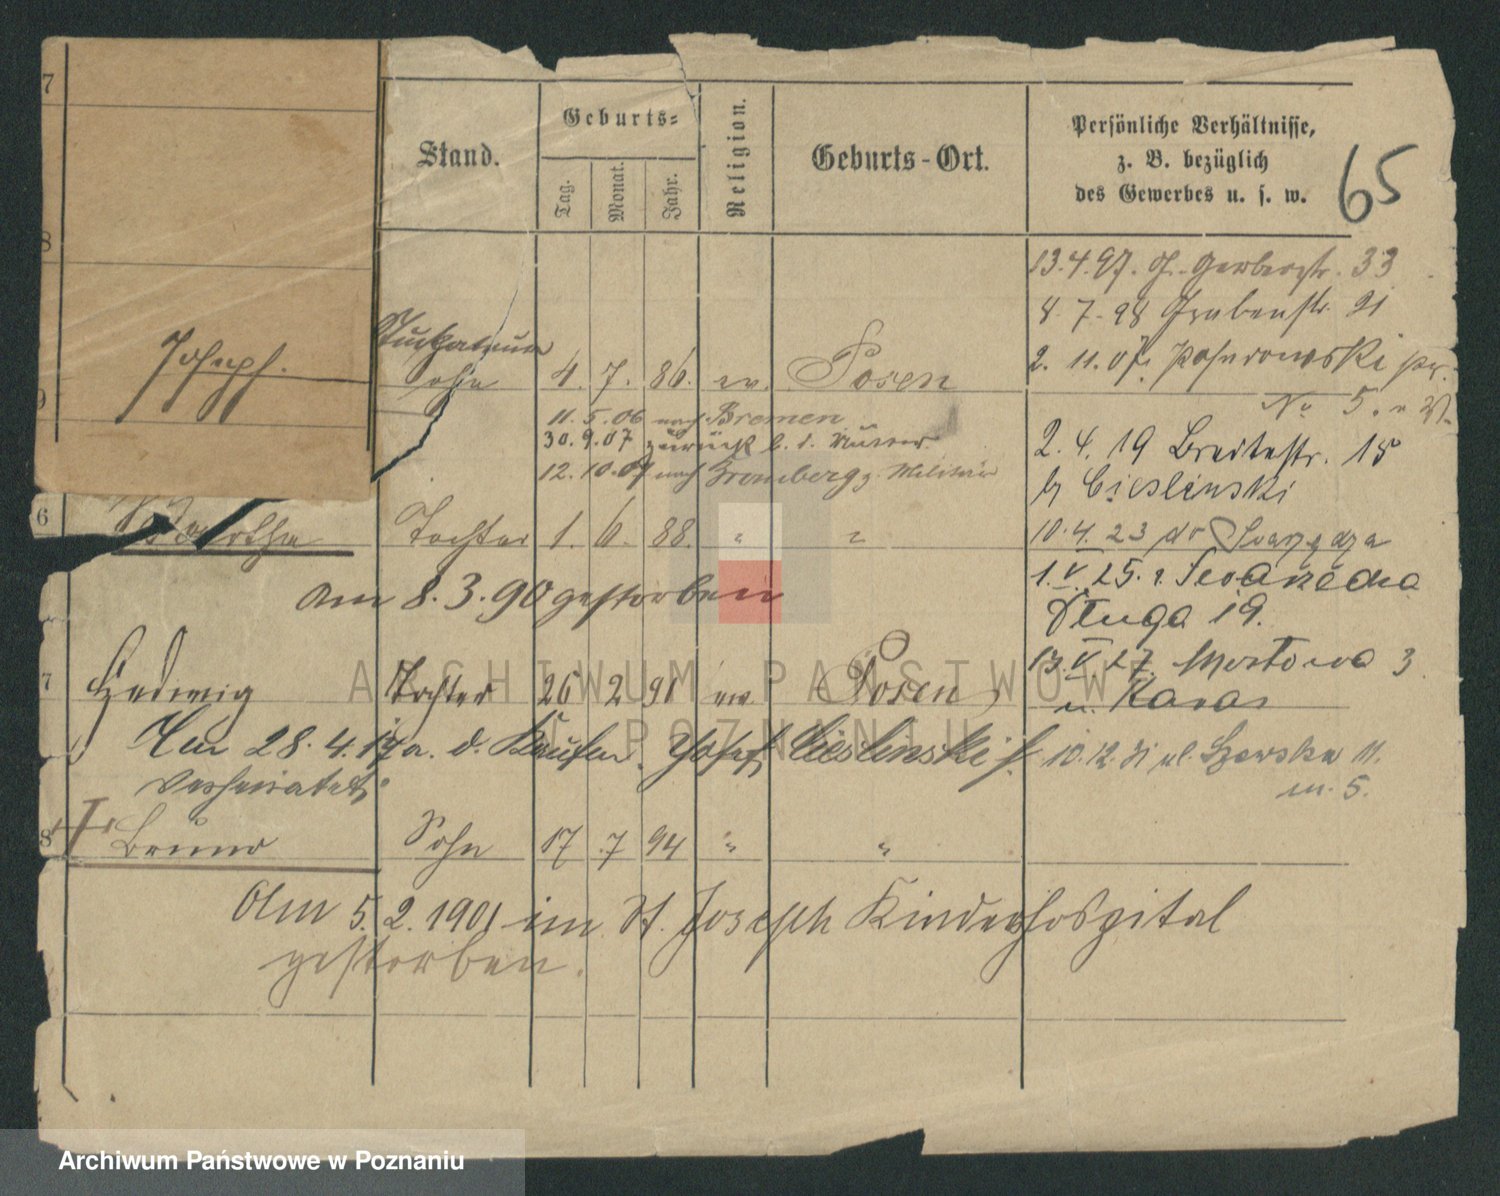 7
8
9
Stand.
Geburts-
Tag.
Monat.
Jahr.
Religion.
Geburts-Ort.
Persönliche Verhältnisse,
z. B. bezüglich
des Gewerbes u. s. w.
65
13.4.97. Gr. Gerberstr. 33
8.7.98 Grabenstr. 21
2.11.07. str.
No 5.
2.4.19 Breitestr. 15
b/ Cieslinski
10.4.23 do Swarzędza
1.V.25. z Swarzędza
Długa 19.
13.V.27 Mostowa 3
u. Karas
10.12.31 ul. Szewska 11.
m. 5.
Joseph.
Stuckateur
Sohn 4. 7. 86. ev. Posen
11.5.06 nach Bremen
30.9.07 zurück b. d. Mutter.
12.10.07 nach Bromberg z. Militär
6 Bertha Tochter 1. 6. 88. " "
Am 8.3.90 gestorben
7 Hedwig Tochter 26 2 91 ev. Posen
Am 28.4.19 a. d. Kaufm. Josef Cieslinski
verheiratet
8 Bruno Sohn 17 7 94 " "
Am 5.2.1901 im St. Joseph Kinderhospital
gestorben.
ARCHIWUM PAŃSTWOWE
W POZNANIU
Archiwum Państwowe w Poznaniu